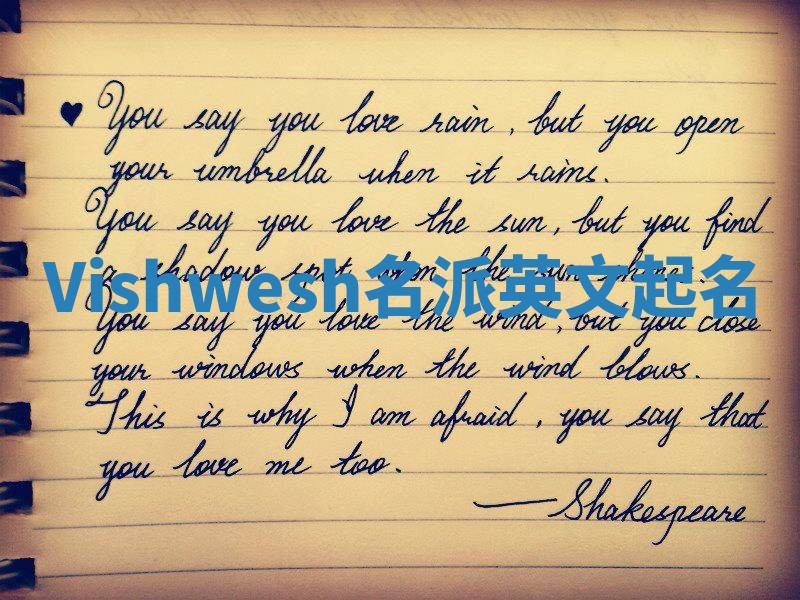 You say you love rain, but you open
your umbrella when it rains.
You say you love the sun, but you find
a shadow spot when the sun shines.
Vishwesh名派英文起名
You say you love the wind, but you close
your windows when the wind blows.
This is why I am afraid, you say that
you love me too.
—Shakespeare